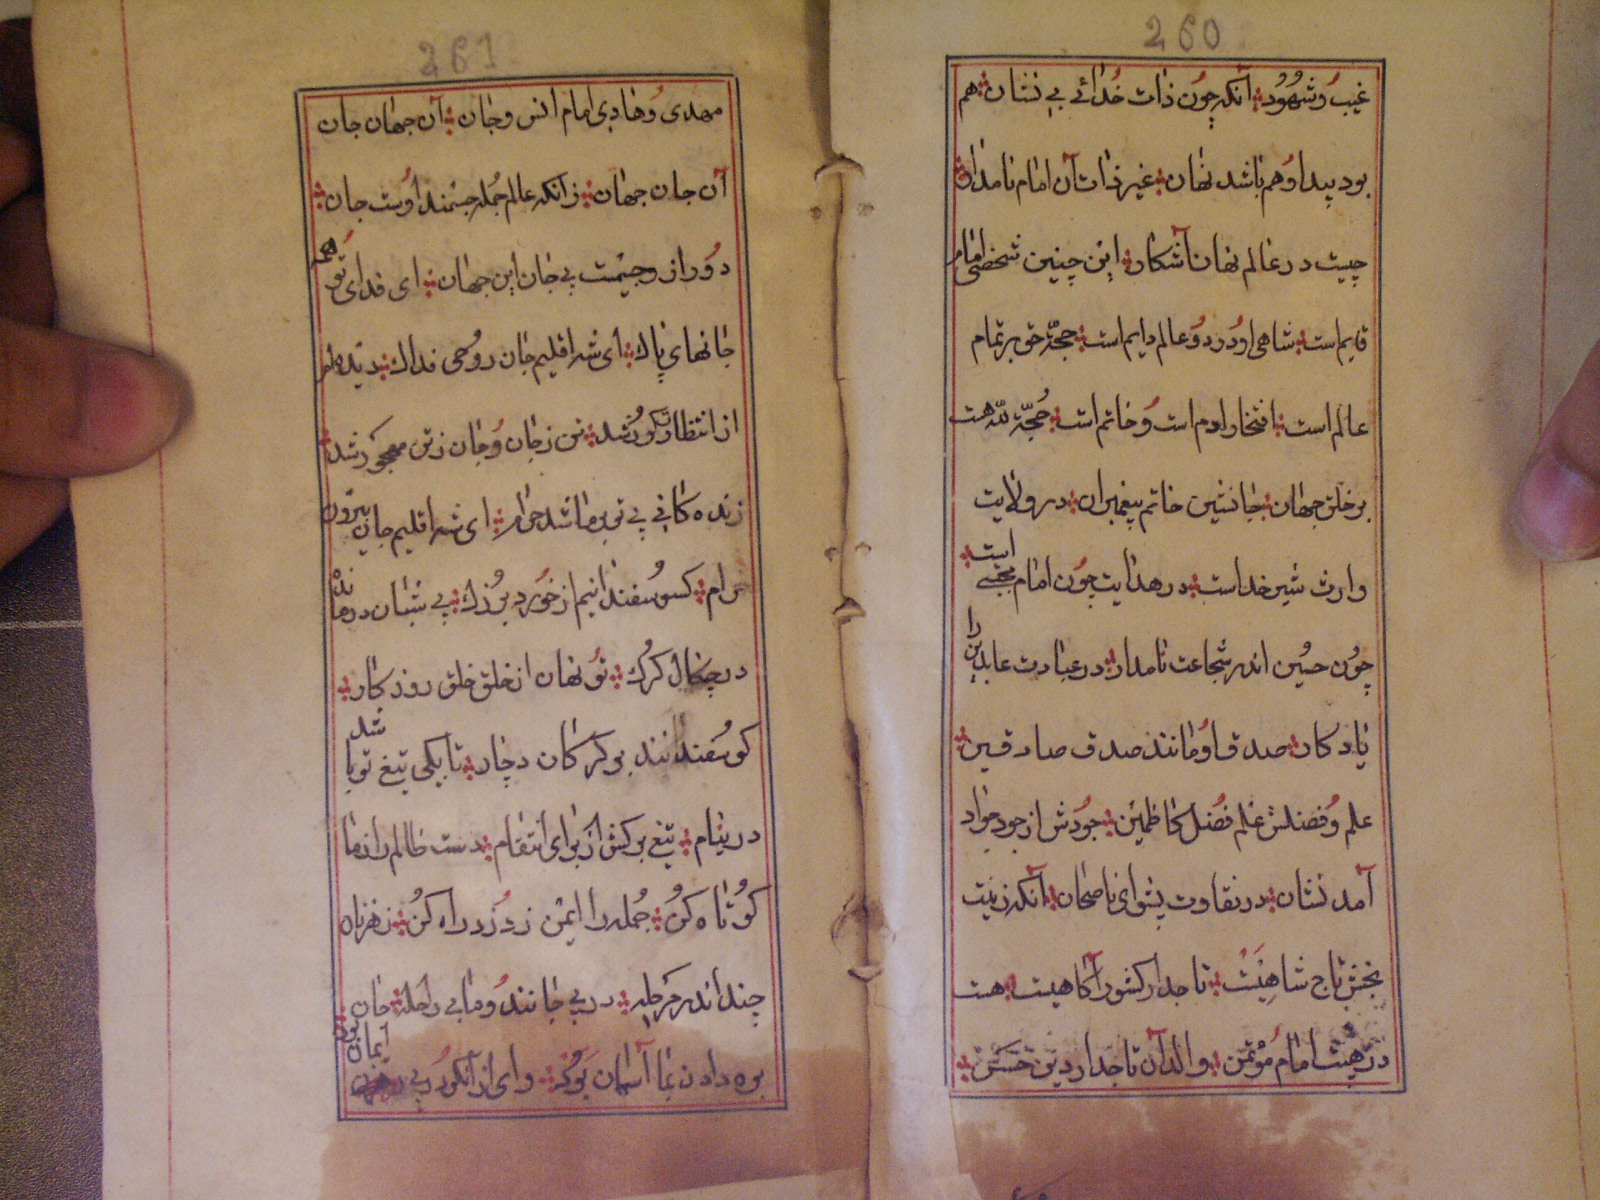 260
غیب و شهود آنکه چون ذات خدائے بے نشان هم
بود پیدا و هم باشد نهان غیر ذات آن امام نامدار
چیست در عالم نهان آشکار این چنین شخصی امام
قایم است شاهی او در دو عالم دایم است حجة حق بر تمام
عالم است افتخار آدم است و خاتم است حجة لله هست
بر خلق جهان جانشین خاتم پیغمبران در ولایت
وارث شیر خداست در هدایت چون امام مجتبے است
چون حسین اندر شجاعت نامدار در عبادت عابدین را
یادکار صدق او مانند صدق صادقین
علم و فضلش علم فضل کاظمین جودش از جود جواد
آمد نشان در نقاوت پیشوای ناصحان آنکه زینت
بخش تاج شاهیست تاجدار کشور آکاهیست هست
در هیئت امام مؤتمن والد آن تاجدار دین حسن
261
مهدی و هادی امام انس و جان آن جهان جان
آن جان جهان زآنکه عالم جمله جسمند اوست جان
دور از و جیست بے جان این جهان ای فدای تو همه
جانهای پاک ای شه اقلیم جان روحی فداک دیده ام
از انتظارت کور شد تن ز جان و جان ز تن مهجور شد
زنده کانی بے تو بر ما شد حرام ای شه اقلیم جان بیرون
خرام کوسفندانیم از خورد و بزرك بے شبان درمانده
در چنکال کرك تو نهان از خلق خلق روزکار
کوسفندانند بر کرکان دچار تا بکی تیغ تو با شد
در نیام تیغ برکش از برای انتقام دست ظالم را ز ما
کوتاه کن جمله را ایمن ز دزد راه کن
چند اندر مرحله درپے جانند و ما بے راحله جان
بره دادن بما آسان بود وای از آنکو در پے ایمان بود